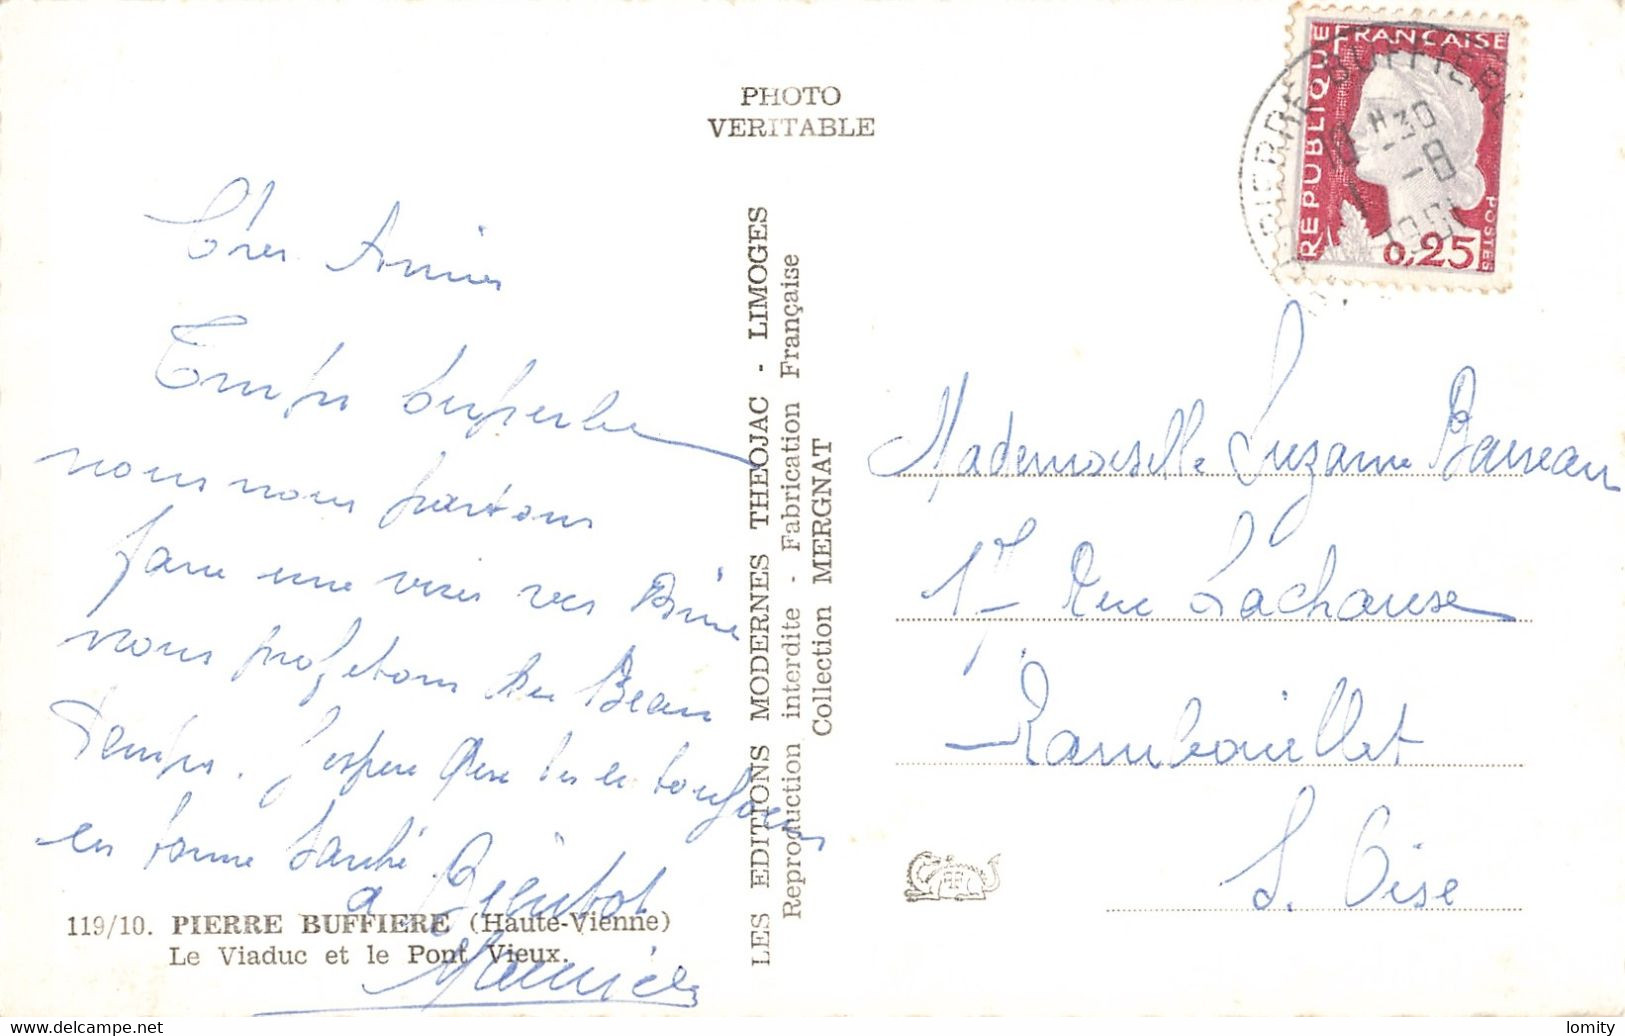 PHOTO
VERITABLE
REPUBLIQUE FRANCAISE
POSTES
0,25
PIERRE-BUFFIERE
10 H30
1 -8
1961
Temps superbe
nous nous partons
faire une vers
nous profitons du Beau
Temps. J'espère que tu es toujours
en bonne santé
a Bientot
Maurice
119/10. PIERRE BUFFIERE (Haute-Vienne)
Le Viaduc et le Pont Vieux.
LES EDITIONS MODERNES THEOJAC - LIMOGES
Reproduction interdite - Fabrication Française
Collection MERGNAT
Mademoiselle Suzanne Barreau
Rue Lachause
Rambouillet
S. Oise
lomity